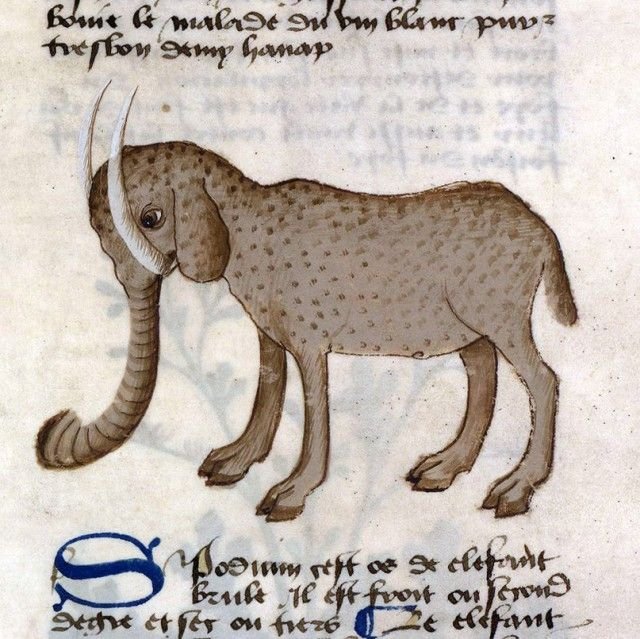 boiue le malade du vin blanc pur ⁊
tresbon demy hanap
Spodium cest os de elefant
brule il est froit ou second
degre et sec ou tiers Le elefant